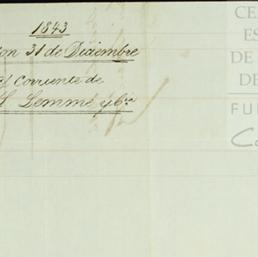 1843
on 31 de Diciembre
Corriente de
Lemme y Cia
CE
ES
DE
DE
FU
Ca